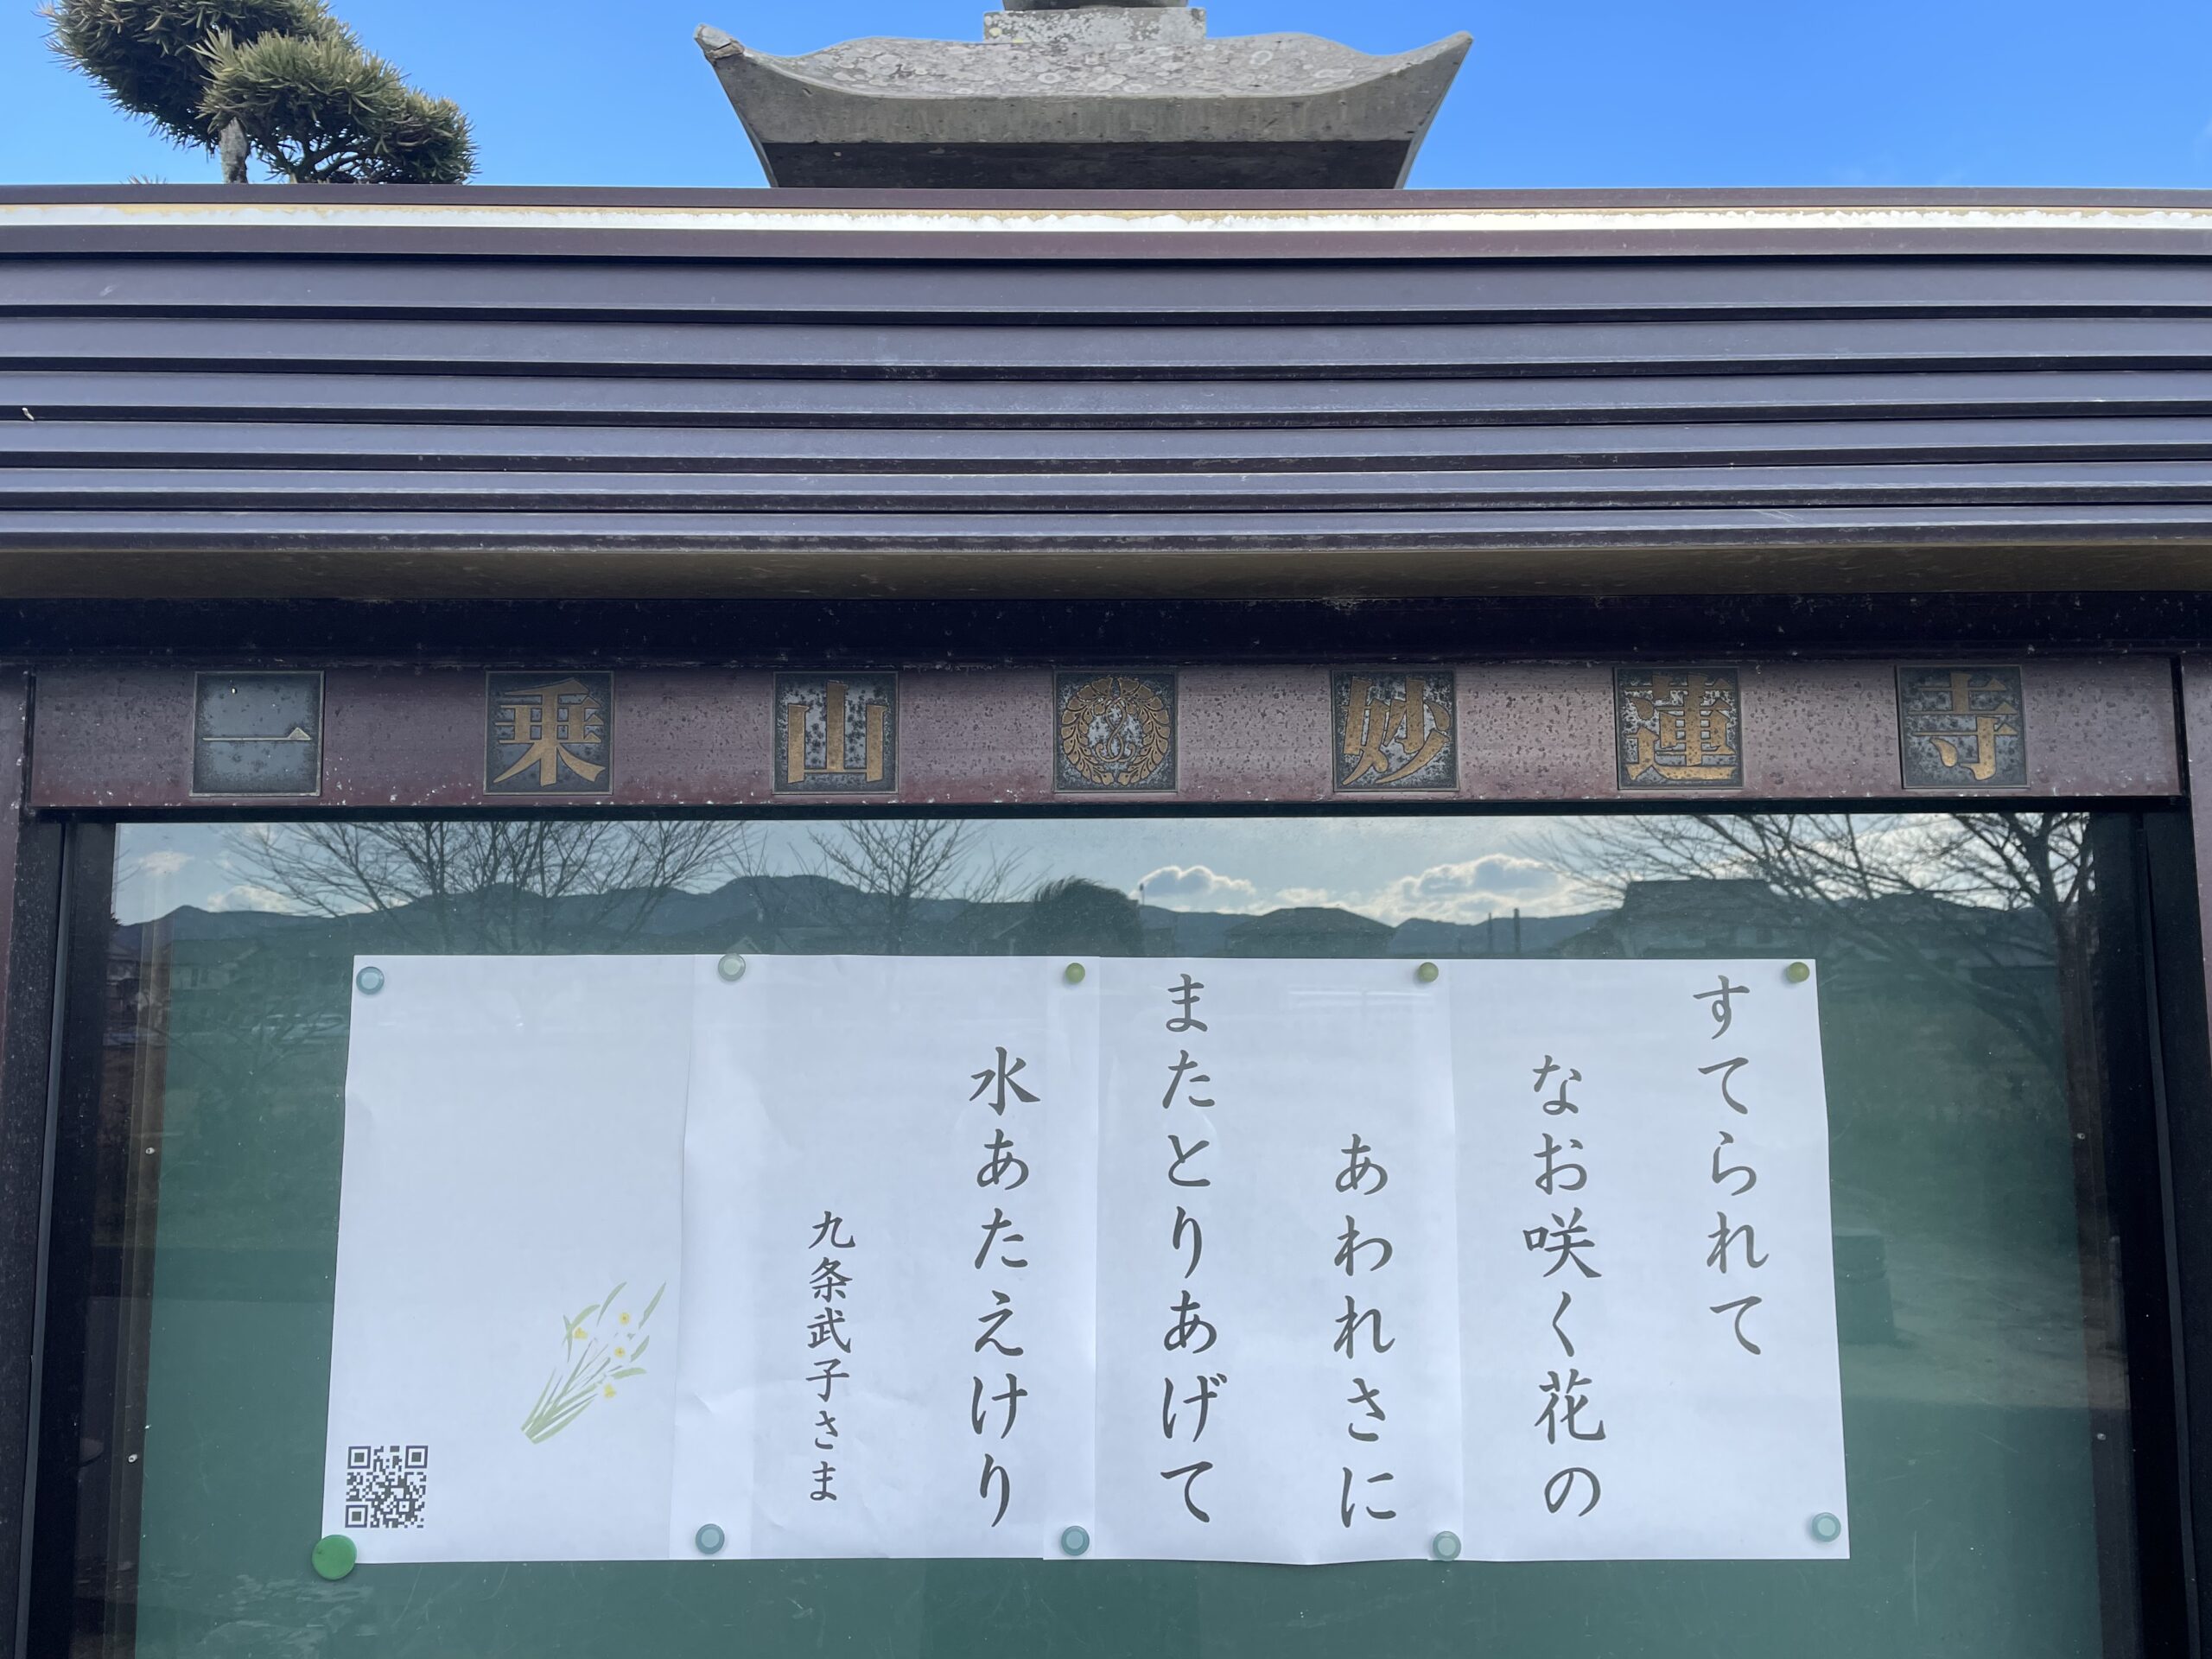 一乗山 妙蓮寺
すてられて
なお咲く花の
あわれさに
またとりあげて
水あたえけり
九条武子さま